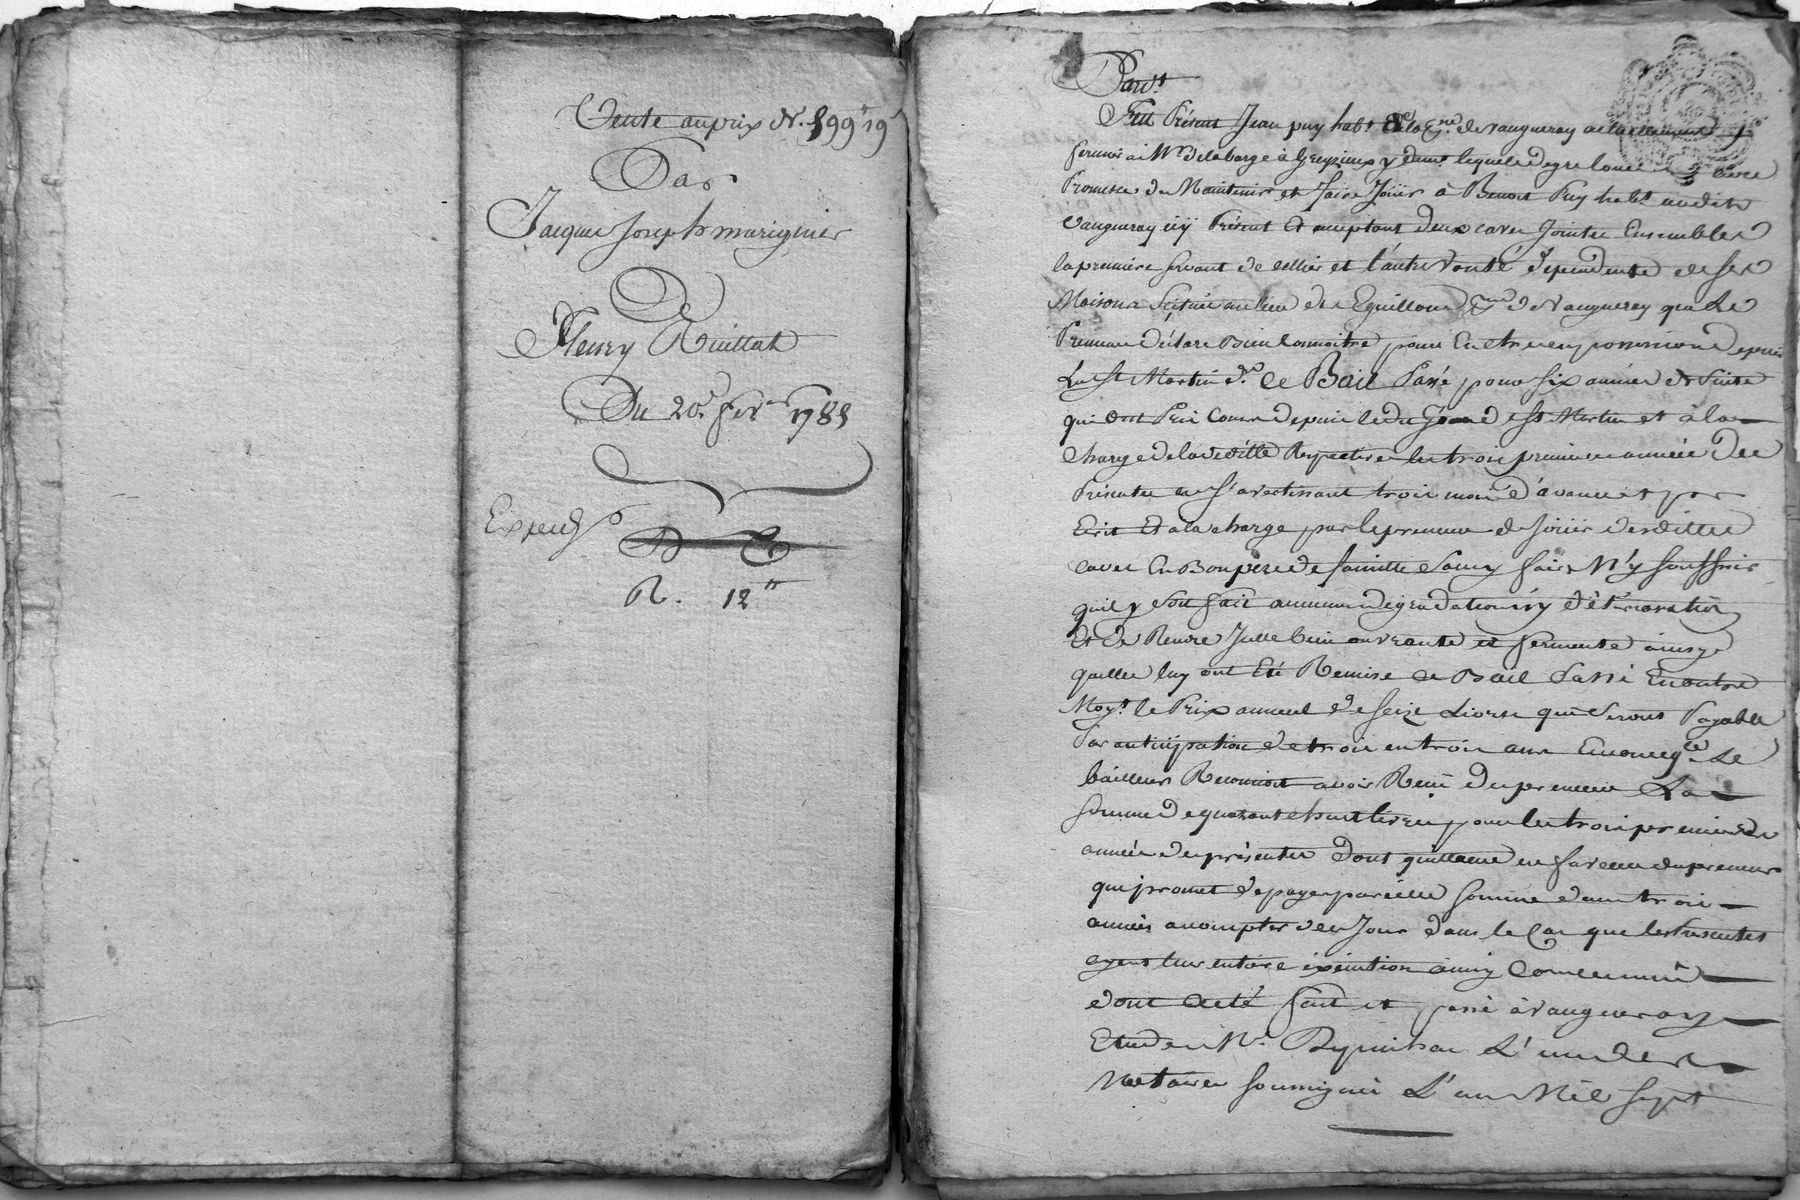 Vente au prix de 899# 19s
Par
Jacques Joseph marignier
De
Fleury Ruillat
Du 20 fevr 1788
Exped
R. 12#
Pardt
Fut Présent Jean puy habt de vaugneray
fermier à Mr Delabarge à Greyzieux
Promesse de Maintenir et faire Joüir à Benoit Puy habt audit
vaugneray icy Présent Et acceptant deux caves Jointes Ensembles
la premiere servant de cellier et l'autre voute dependente de ses
Maisons Scituée au lieu des Eguillons de Vaugneray que Le
Preneur déclare Bien connoitre pour Entrer en possession depuis
La St Martin dre Ce Bail Passé pour six années de suite
qui ont Pris Cours depuis ledit Jour de St Martin et à la
charge de la déditte Respective les trois premieres années des
Présentes en s'avertissant trois mois d'avance et par
Ecrit Et à la charge par le preneur de Joüir desdittes
caves En Bon pere de famille sans y faire N'y souffrir
qu'il y soit fait aucunnes degradations n'y déterioration
Et de Rendre Icelle bien ouvrante et fermente ainsy
quelles luy ont Eté Remise ce Bail Passé En outre
Moyt le Prix annuel de seize Livres qui seront Payable
Par anticipation de trois en trois ans le
bailleur Reconnoit avoir Recû du preneur La
somme de quarante huit livres pour les trois premieres
années des présentes dont quittance en faveur du preneur
qui promet de payer pareille somme dans trois
années a compter de ce Jour dans le Cas que les Presentes
ayent leur entiere éxécution ainsy Convenu
dont acte fait et passé à vaugneray
Etude de Me L'un des
Notaires soussignés L'an Mil sept